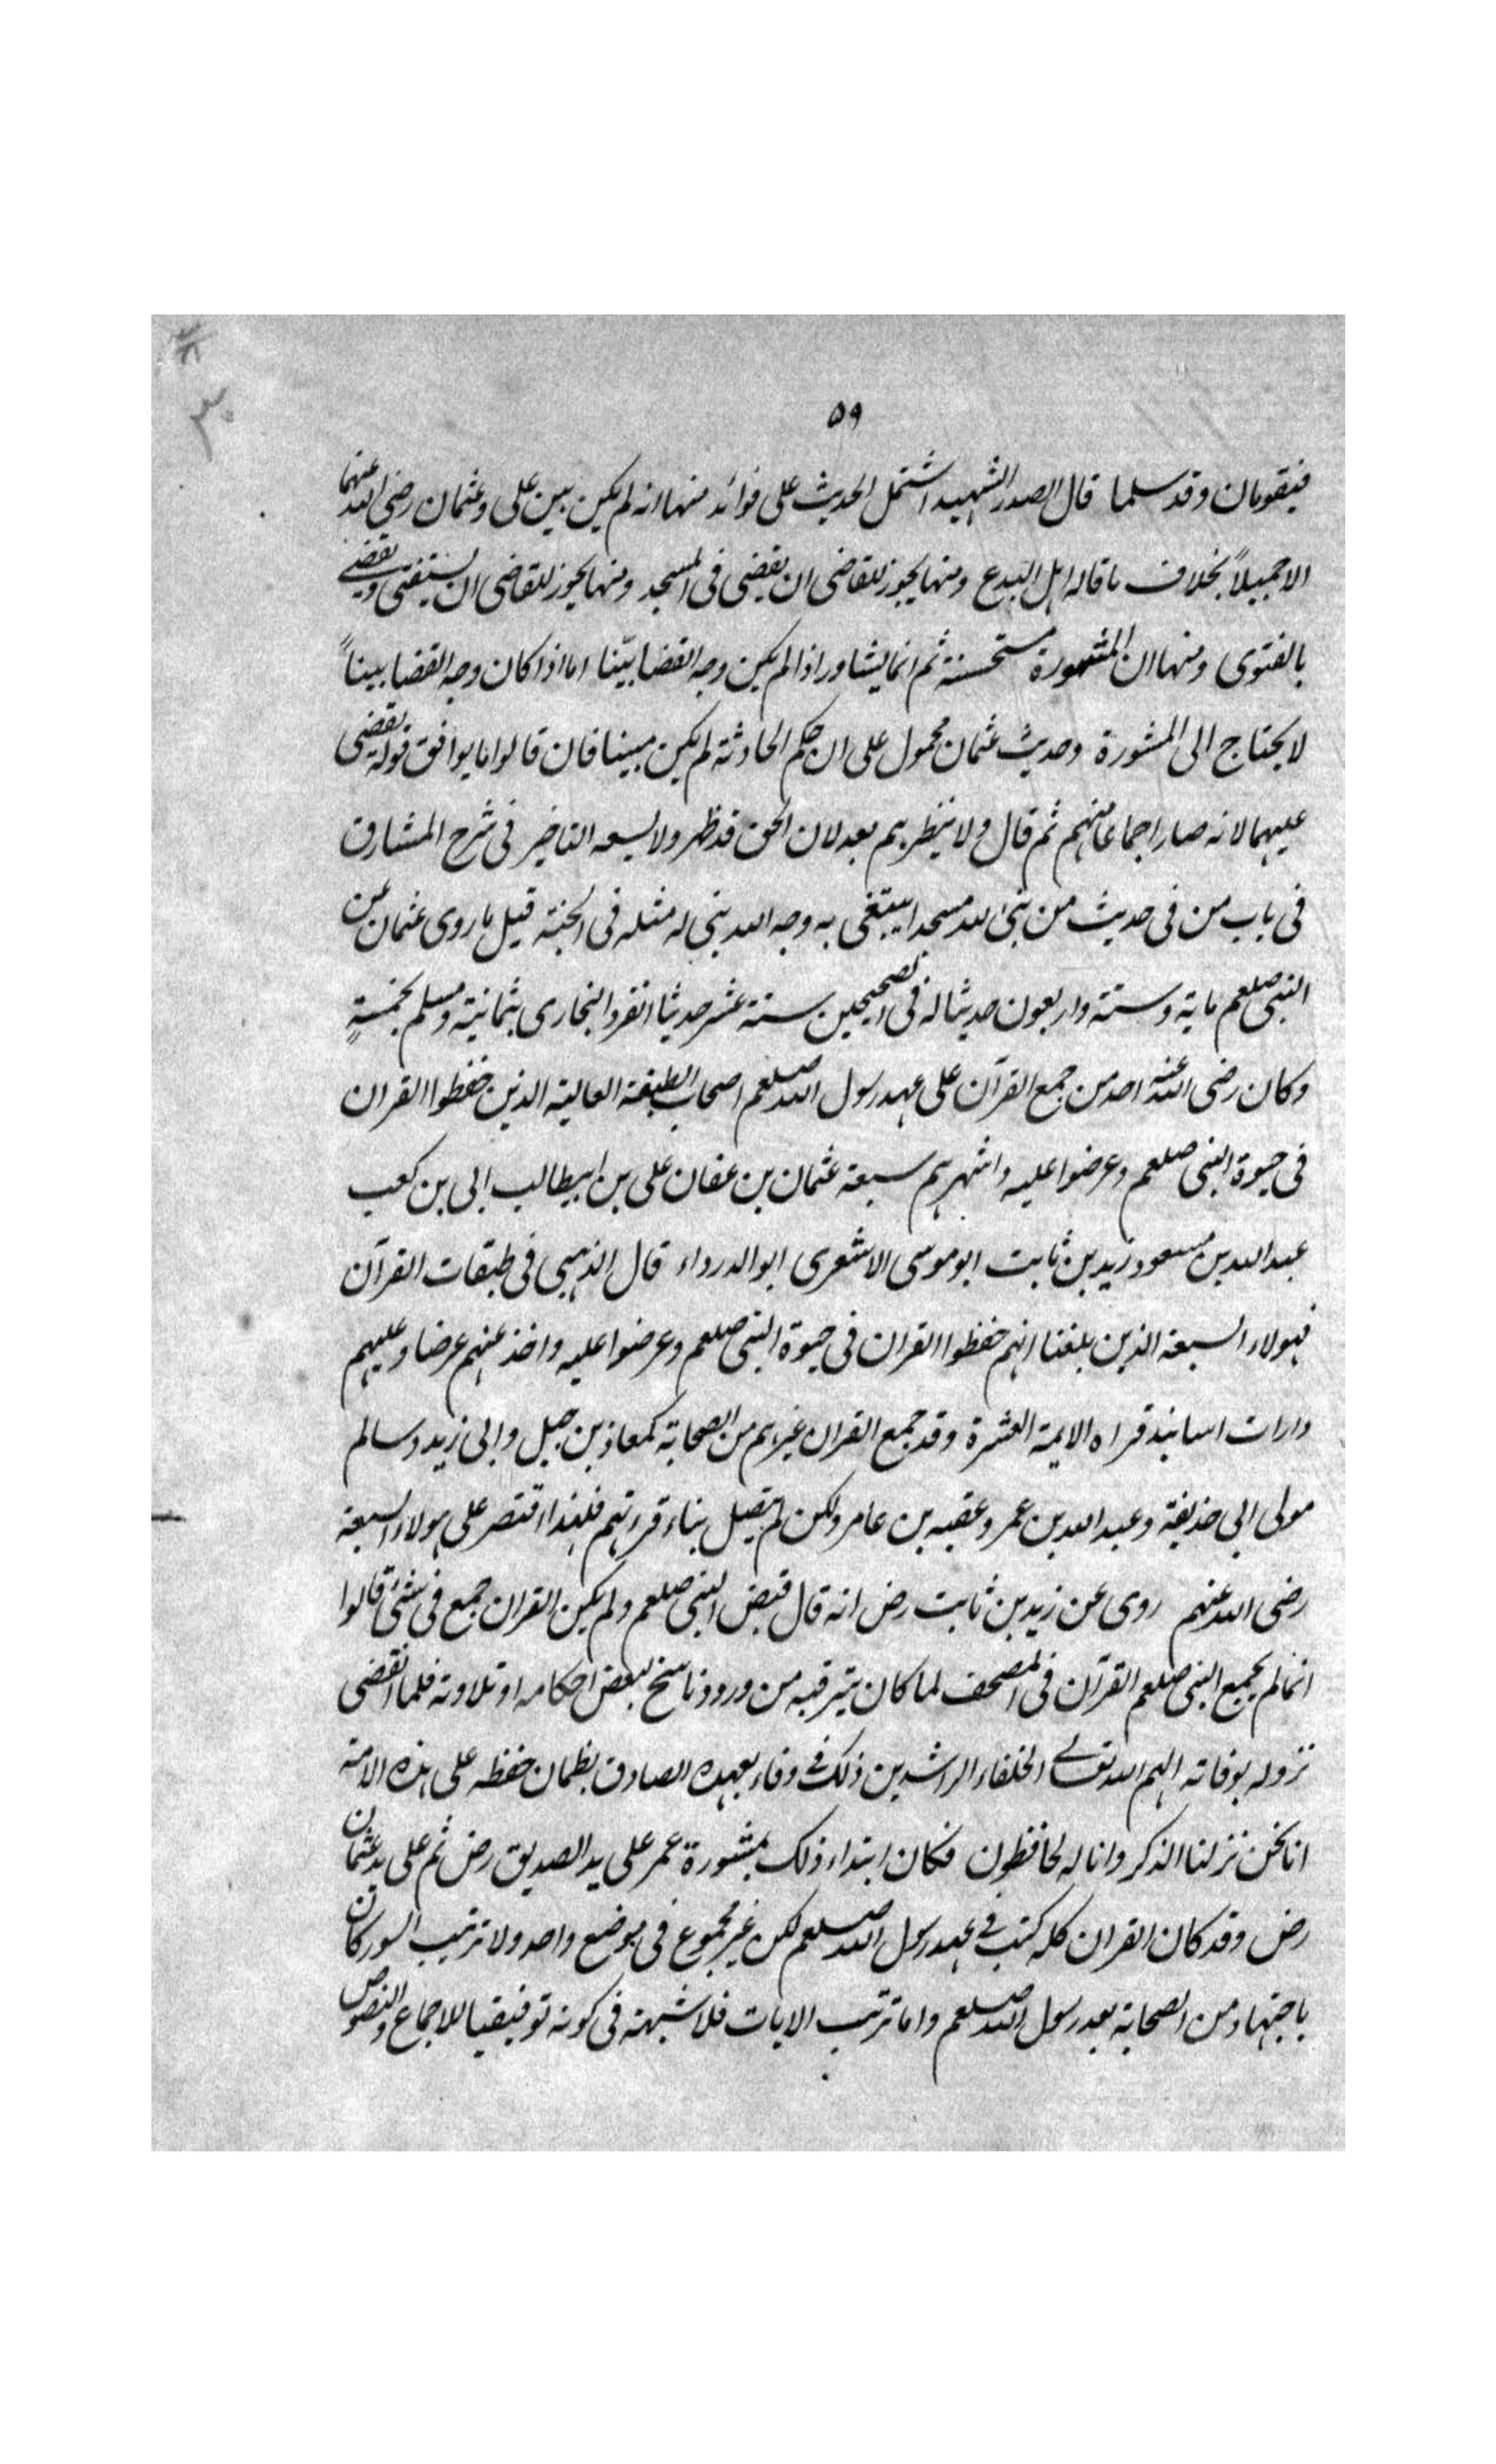 ۵۹
فيقومان وقد سلما قال الصدر الشهيد اشتمل الحديث على فوائد منها انه لم يكن بين على وعثمان رضى الله عنهما
الا جميلاً بخلاف ما قاله اهل البدع ومنها يجوز للقاضى ان يقضى فى المسجد ومنها يجوز للقاضى ان يستفتى ويقضى
بالفتوى ومنها ان المشورة مستحسنة ثم انما يشاور اذا لم يكن وجه القضا بيّنا اما اذا كان وجه القضا بيناً
لا يحتاج الى المشورة وحديث عثمان محمول على ان حكم الحادثة لم يكن مبينا فان قالوا ما يوافق قوله يقضى
عليهما لانه صار اجماعا منهم ثم قال ولا ينظرهم بعد لان الحق قد ظهر ولا يسعه التاخير فى شرح المشارق
فى باب من فى حديث من بنى لله مسجدا يبتغى به وجه الله بنى له مثله فى الجنة قيل ما روى عثمان عن
النبى صلعم ماية وستة واربعون حديثا له فى الصحيحين ستة عشر حديثا انفرد البخارى بثمانية ومسلم بخمسةٍ
وكان رضى الله عنه احد من جمع القرآن على عهد رسول الله صلعم اصحاب الطبقة العالية الذين حفظوا القران
فى حيوة النبى صلعم وعرضوا عليه واشهرهم سبعة عثمان بن عفان على بن ابيطالب ابى بن كعب
عبد الله بن مسعود زيد بن ثابت ابو موسى الاشعرى ابو الدرداء قال الذهبى فى طبقات القرآن
فهولاء السبعة الذين بلغنا انهم حفظوا القران فى حيوة النبى صلعم وعرضوا عليه واخذ عنهم عرضا وعليهم
دارات اسانيد قراه الايمة العشرة وقد جمع القران غيرهم من الصحابة كمعاذ بن جبل وابى زيد وسالم
مولى ابى حذيفة وعبد الله بن عمر وعقبه بن عامر ولكن لم يتصل بناء قرءتهم فلهذا اقتصر على هولاء السبعة
رضى الله عنهم روى عن زيد بن ثابت رض انه قال قبض النبى صلعم ولم يكن القران جمع فى شئ قالوا
انما لم يجمع النبى صلعم القرآن فى المصحف لما كان يترقبه من ورود ناسخ لبعض احكامه او تلاوته فلما انقضى
نزوله بوفاته الهم الله تعالى الخلفاء الراشدين ذلك فى وفاء بعهده الصادق بظمان حفظه على هذه الامة
انا نحن نزلنا الذكر وانا له لحافظون فكان ابتداء ذلك بمشورة عمر على يد الصديق رض ثم على يد عثمان
رض وقد كان القران كله كتب فى عهد رسول الله صلعم لكن غير مجموع فى موضع واحد ولا ترتيب السور كان
باجتهاد من الصحابة بعد رسول الله صلعم واما ترتيب الايات فلا شبهة فى كونه توفيقيا للاجماع والنصوص